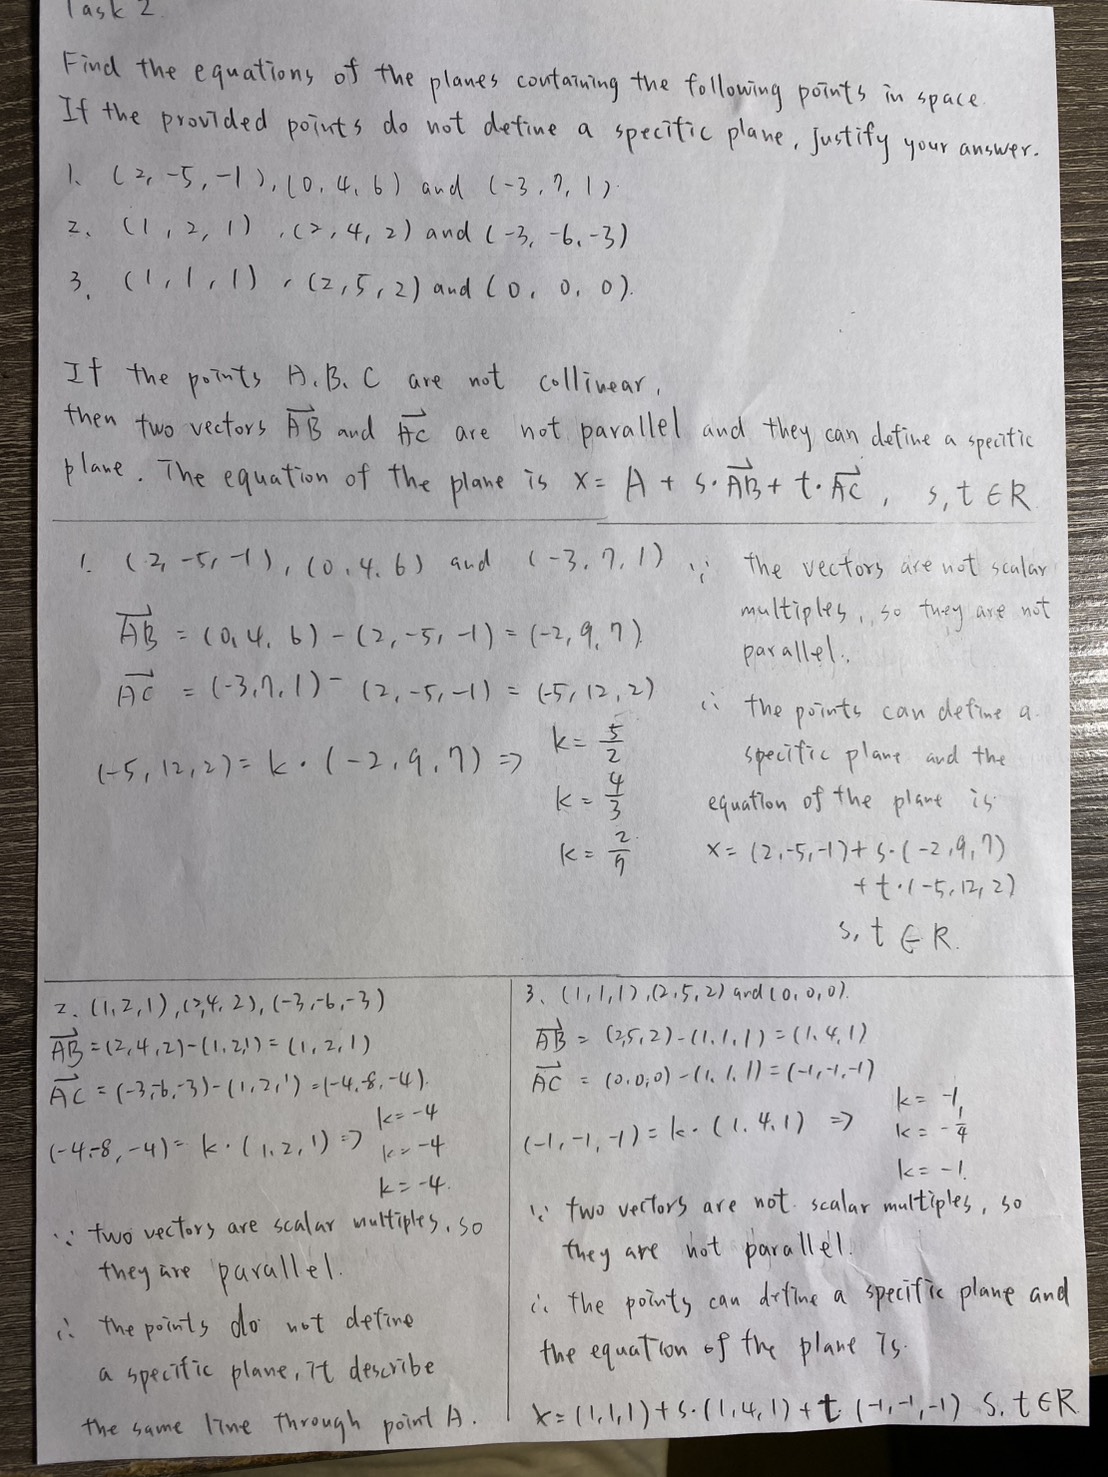 Task 2
Find the equations of the planes containing the following points in space.
If the provided points do not define a specific plane, justify your answer.
1. (2, -5, -1), (0, 4, 6) and (-3, 7, 1).
2. (1, 2, 1), (2, 4, 2) and (-3, -6, -3)
3. (1, 1, 1), (2, 5, 2) and (0, 0, 0).
If the points A, B, C are not collinear,
then two vectors AB and AC are not parallel and they can define a specific
plane. The equation of the plane is x = A + s·AB + t·AC, s, t ∈ R
1. (2, -5, -1), (0, 4, 6) and (-3, 7, 1)
AB = (0, 4, 6) - (2, -5, -1) = (-2, 9, 7).
AC = (-3, 7, 1) - (2, -5, -1) = (-5, 12, 2)
(-5, 12, 2) = k · (-2, 9, 7) ⇒
k = 5/2
k = 4/3
k = 2/7
∵ the vectors are not scalar
multiples, so they are not
parallel.
∴ the points can define a
specific plane and the
equation of the plane is
x = (2, -5, -1) + s·(-2, 9, 7)
+ t·(-5, 12, 2)
s, t ∈ R.
2. (1, 2, 1), (2, 4, 2), (-3, -6, -3)
AB = (2, 4, 2) - (1, 2, 1) = (1, 2, 1)
AC = (-3, -6, -3) - (1, 2, 1) = (-4, -8, -4).
(-4, -8, -4) = k · (1, 2, 1) ⇒
k = -4
k = -4
k = -4.
∵ two vectors are scalar multiples, so
they are parallel.
∴ the points do not define
a specific plane, it describe
the same line through point A.
3. (1, 1, 1), (2, 5, 2) and (0, 0, 0).
AB = (2, 5, 2) - (1, 1, 1) = (1, 4, 1)
AC = (0, 0, 0) - (1, 1, 1) = (-1, -1, -1)
(-1, -1, -1) = k · (1, 4, 1) ⇒
k = -1,
k = -1/4
k = -1.
∵ two vectors are not scalar multiples, so
they are not parallel.
∴ the points can define a specific plane and
the equation of the plane is.
x = (1, 1, 1) + s·(1, 4, 1) + t·(-1, -1, -1) s, t ∈ R